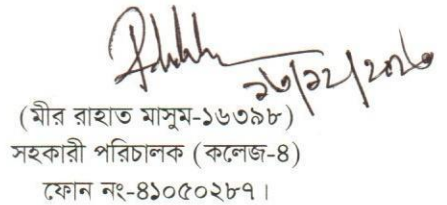 (মীর রাহাত মাসুম-১৬৩৯৮)
সহকারী পরিচালক (কলেজ-৪)
ফোন নং-৪১০৫০২৮৭।